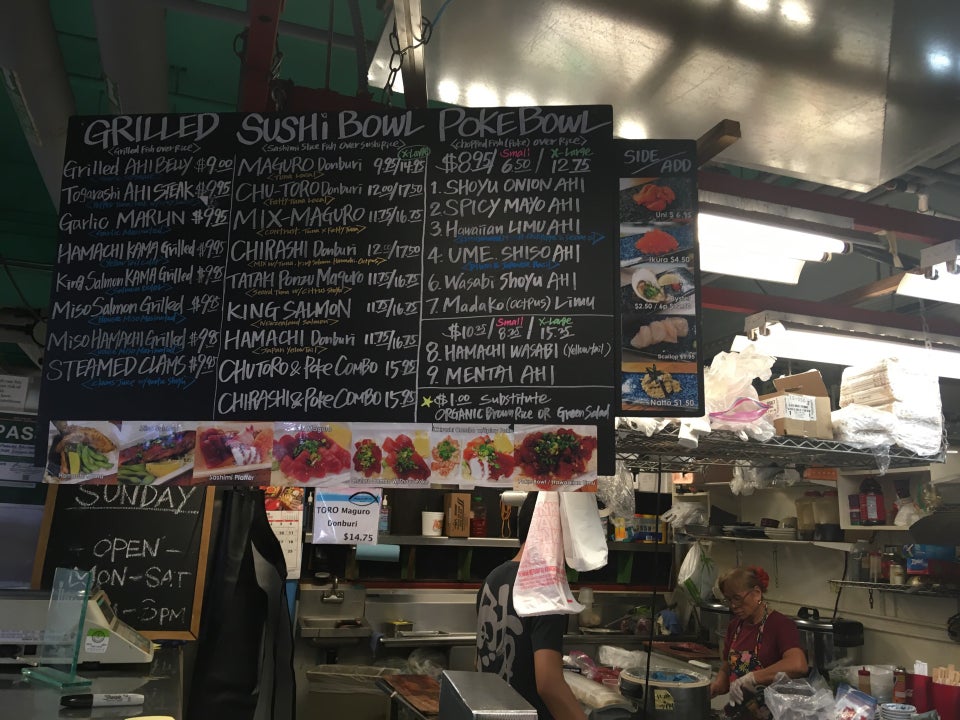 GRILLED
<Grilled Fish over Rice>
Grilled AHI BELLY $9.00
Togarashi AHI STEAK $9.95
Garlic MARLIN $9.95
HAMACHI KAMA Grilled $9.95
King Salmon KAMA Grilled $9.95
Miso Salmon Grilled $9.95
Miso HAMACHI Grilled $9.95
STEAMED CLAMS $9.95
SUSHi BOWL
<Sashimi Slice Fish over Sushi Rice>
X-Large
MAGURO Donburi 9.95/14.95
<Tuna Local>
CHU-TORO Donburi 12.00/17.50
<Fatty Tuna Local>
MIX-MAGURO 11.75/16.75
CHIRASHI Donburi 12.00/17.50
TATAKI Ponzu Maguro 11.75/16.75
KING SALMON 11.75/16.75
<Newzealand Salmon>
HAMACHI Donburi 11.75/16.75
<Japan Yellowtail>
CHUTORO & Poke COMBO 15.95
CHIRASHI & Poke COMBO 15.95
POKE BOWL
<Chopped Fish (Poke) over Rice>
$8.95 / Small 6.50 / X-Large 12.75
1. SHOYU ONION AHI
2. SPICY MAYO AHI
3. Hawaiian LIMU AHI
4. UME SHISO AHI
6. Wasabi Shoyu AHI
7. Madako (octpus) Limu
$10.25 / Small 8.25 / X-Large 15.25
8. HAMACHI WASABI (Yellowtail)
9. MENTAI AHI
$1.00 Substitute
ORGANIC Brown Rice OR Green Salad
SIDE / ADD
Uni $ 6.95
Ikura $4.50
Oyster
$2.50 / 6p
Scallop $1.95
Natto $1.50
Sashimi Platter
SUNDAY
- OPEN -
MON-SAT
TORO Maguro
Donburi
$14.75